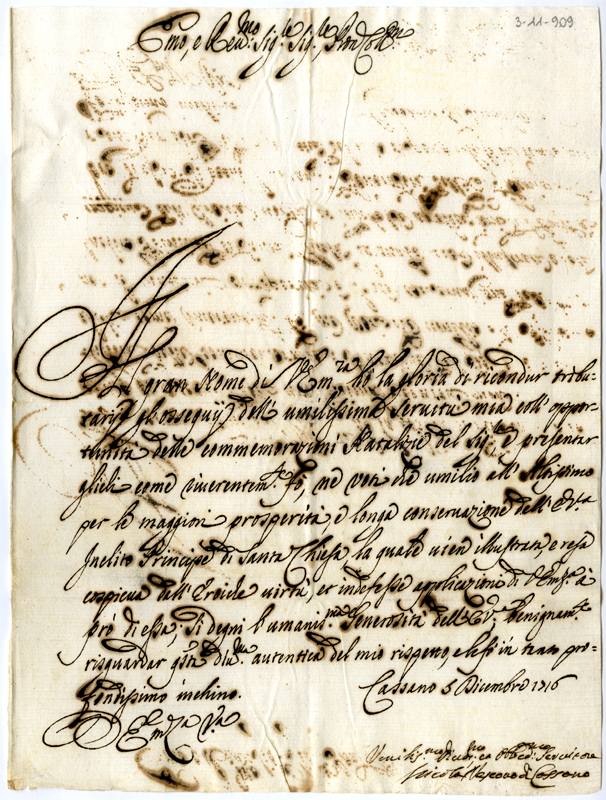 3-11-909
Emo, e Reu.mo Sig.le Sig.le Pron Coll.mo
Al gran Nome di V.Em.za hò la gloria di ricondur tribu=
tarij gli ossequij dell' umilissima seruitù mia coll' oppor=
tunità delle commemorazioni Natalzie del Sig.re è presentar
glieli come riuerentem.te fò, nè voti che umilio all' Altissimo
per le maggiori prosperità è longa conseruazione dell' E.V.a
Inclito Principe di Santa Chiesa la quale uien' illustrata, e resa
cospicua dall' Eroiche uirtù, et indefesse applicazioni di V.Emz.a à
prò di essa; Si degni l'umaniss.ma Generosità dell' E.V. benignam.te
risguardar q.sta autentica del mio rispetto, e lesò in tanto pro=
fondissimo inchino. Cassano 5 Dicembre 1716
Emza V.a
Vmilis.mo Diuot.mo ed Obbed.mo Seruitore
Nicolò Vescouo di Cassano